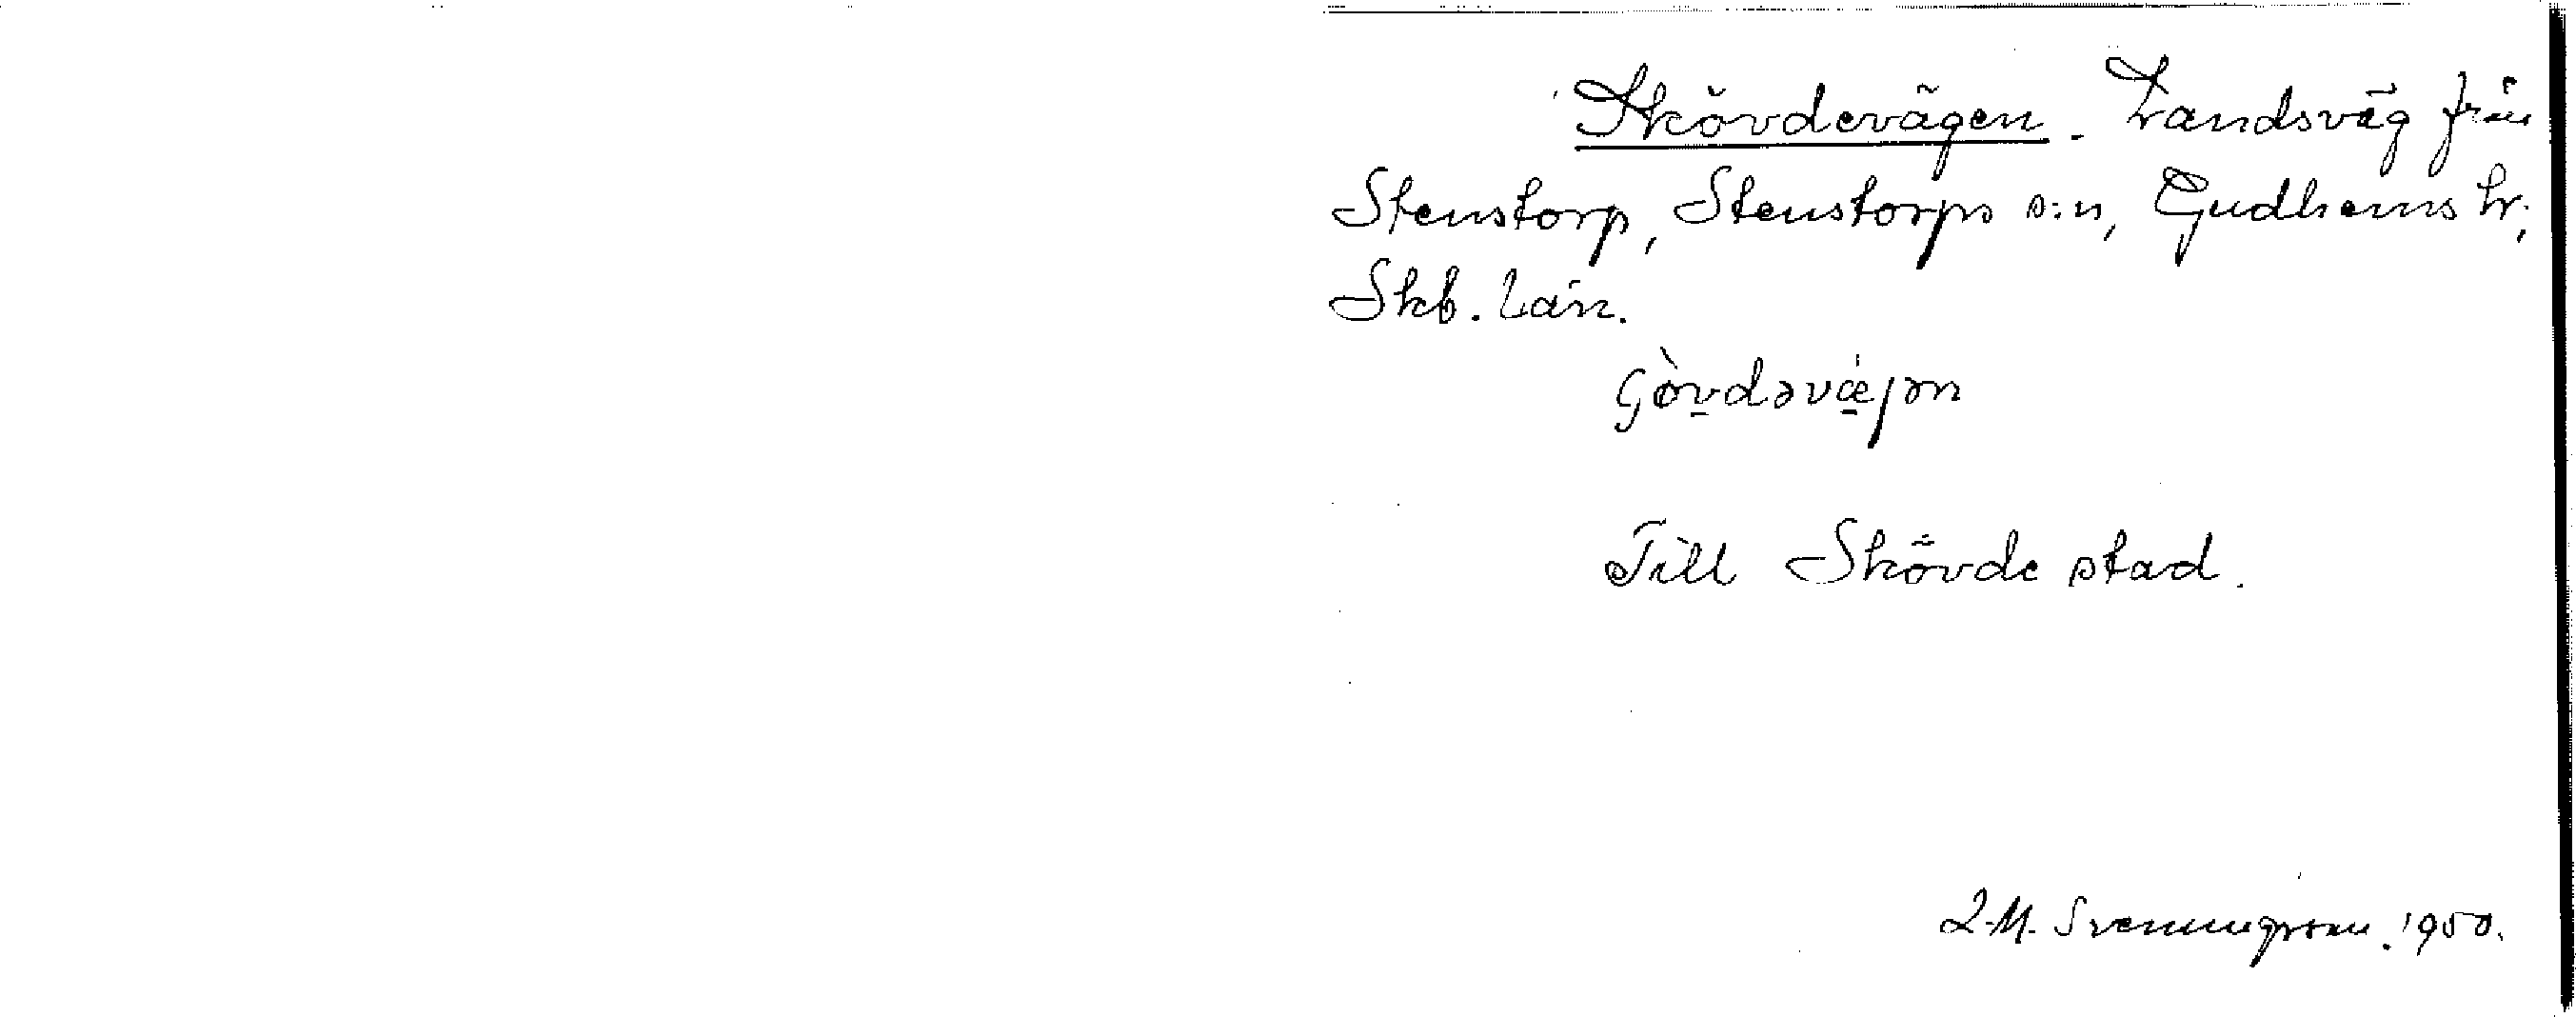 Skövdevägen. Landsväg från
Stenstorp, Stenstorps s:n, Gudhems hr,
Skb. län.
çòv̠dəvǽ̠jən
Till Skövde stad.
L-M. Svenungsson. 1950.